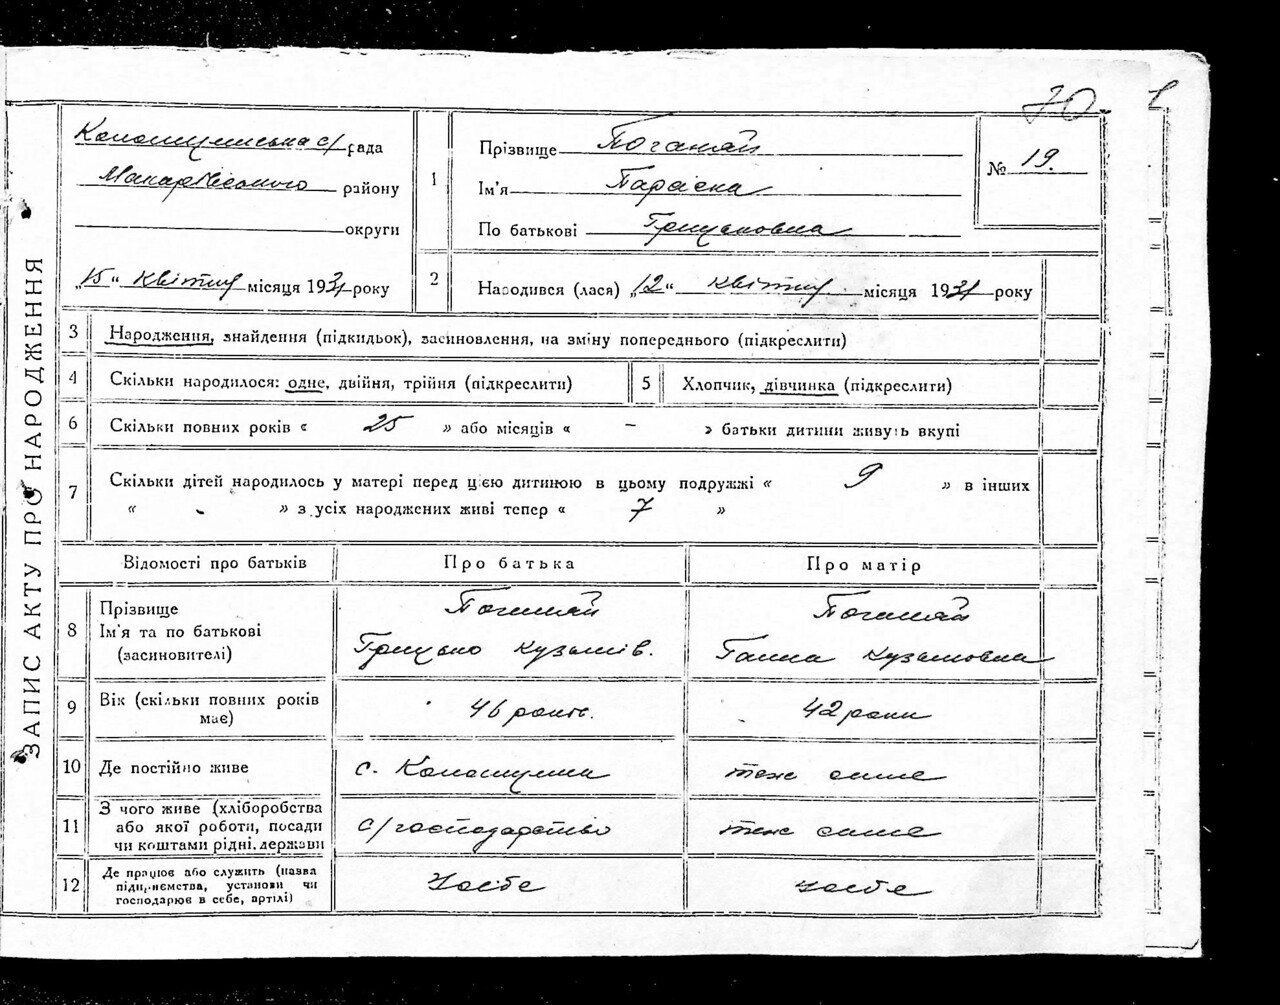 70
ЗАПИС АКТУ ПРО НАРОДЖЕННЯ
с/рада
району
округи
„15“ квітня місяця 1931 року
1
Прізвище Поганяй
Ім'я Параска
По батькові Грицьковна
№ 19.
2
Народився (лася) „12“ квітня місяця 1931 року
3 Народження, знайдення (підкидьок), засиновлення, на зміну попереднього (підкреслити)
4 Скільки народилося: одне, двійня, трійня (підкреслити)
5 Хлопчик, дівчинка (підкреслити)
6 Скільки повних років « 25 » або місяців « – » батьки дитини живуть вкупі
7 Скільки дітей народилось у матері перед цією дитиною в цьому подружжі « 9 » в інших
« - » з усіх народжених живі тепер « 7 »
Відомості про батьків Про батька Про матір
8 Прізвище
Ім'я та по батькові
(засиновителі)
Поганяй
Грицько Кузьмів.
Поганяй
Ганна Кузьмовна
9 Вік (скільки повних років має)
46 років.
42 роки
10 Де постійно живе
с.
теж саме
11 З чого живе (хліборобства
або якої роботи, посади
чи коштами рідні, держави
с/господарство
теж саме
12 Де працює або служить (назва
підприємства, установи чи
господарює в себе, артілі)
У себе
у себе